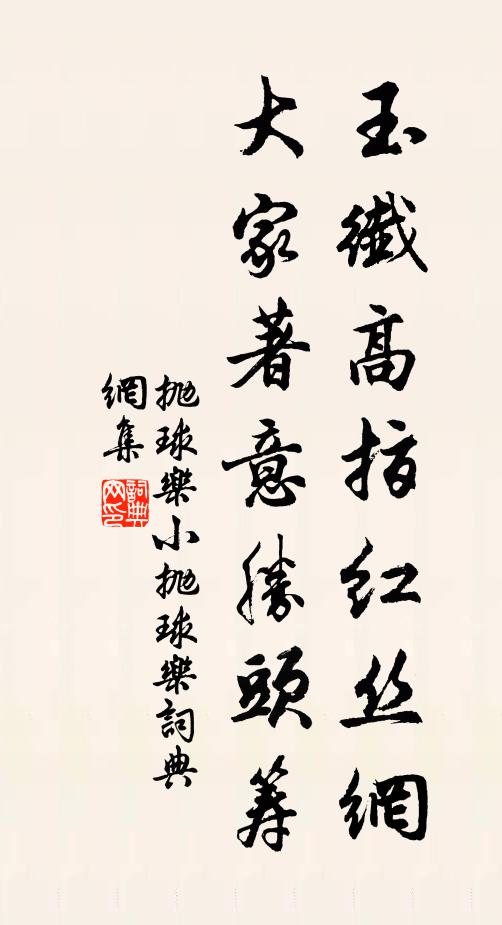 玉纖高指红丝網
大家著意勝頭筹
抛球樂小抛球樂詞典
網集
詞典
网印